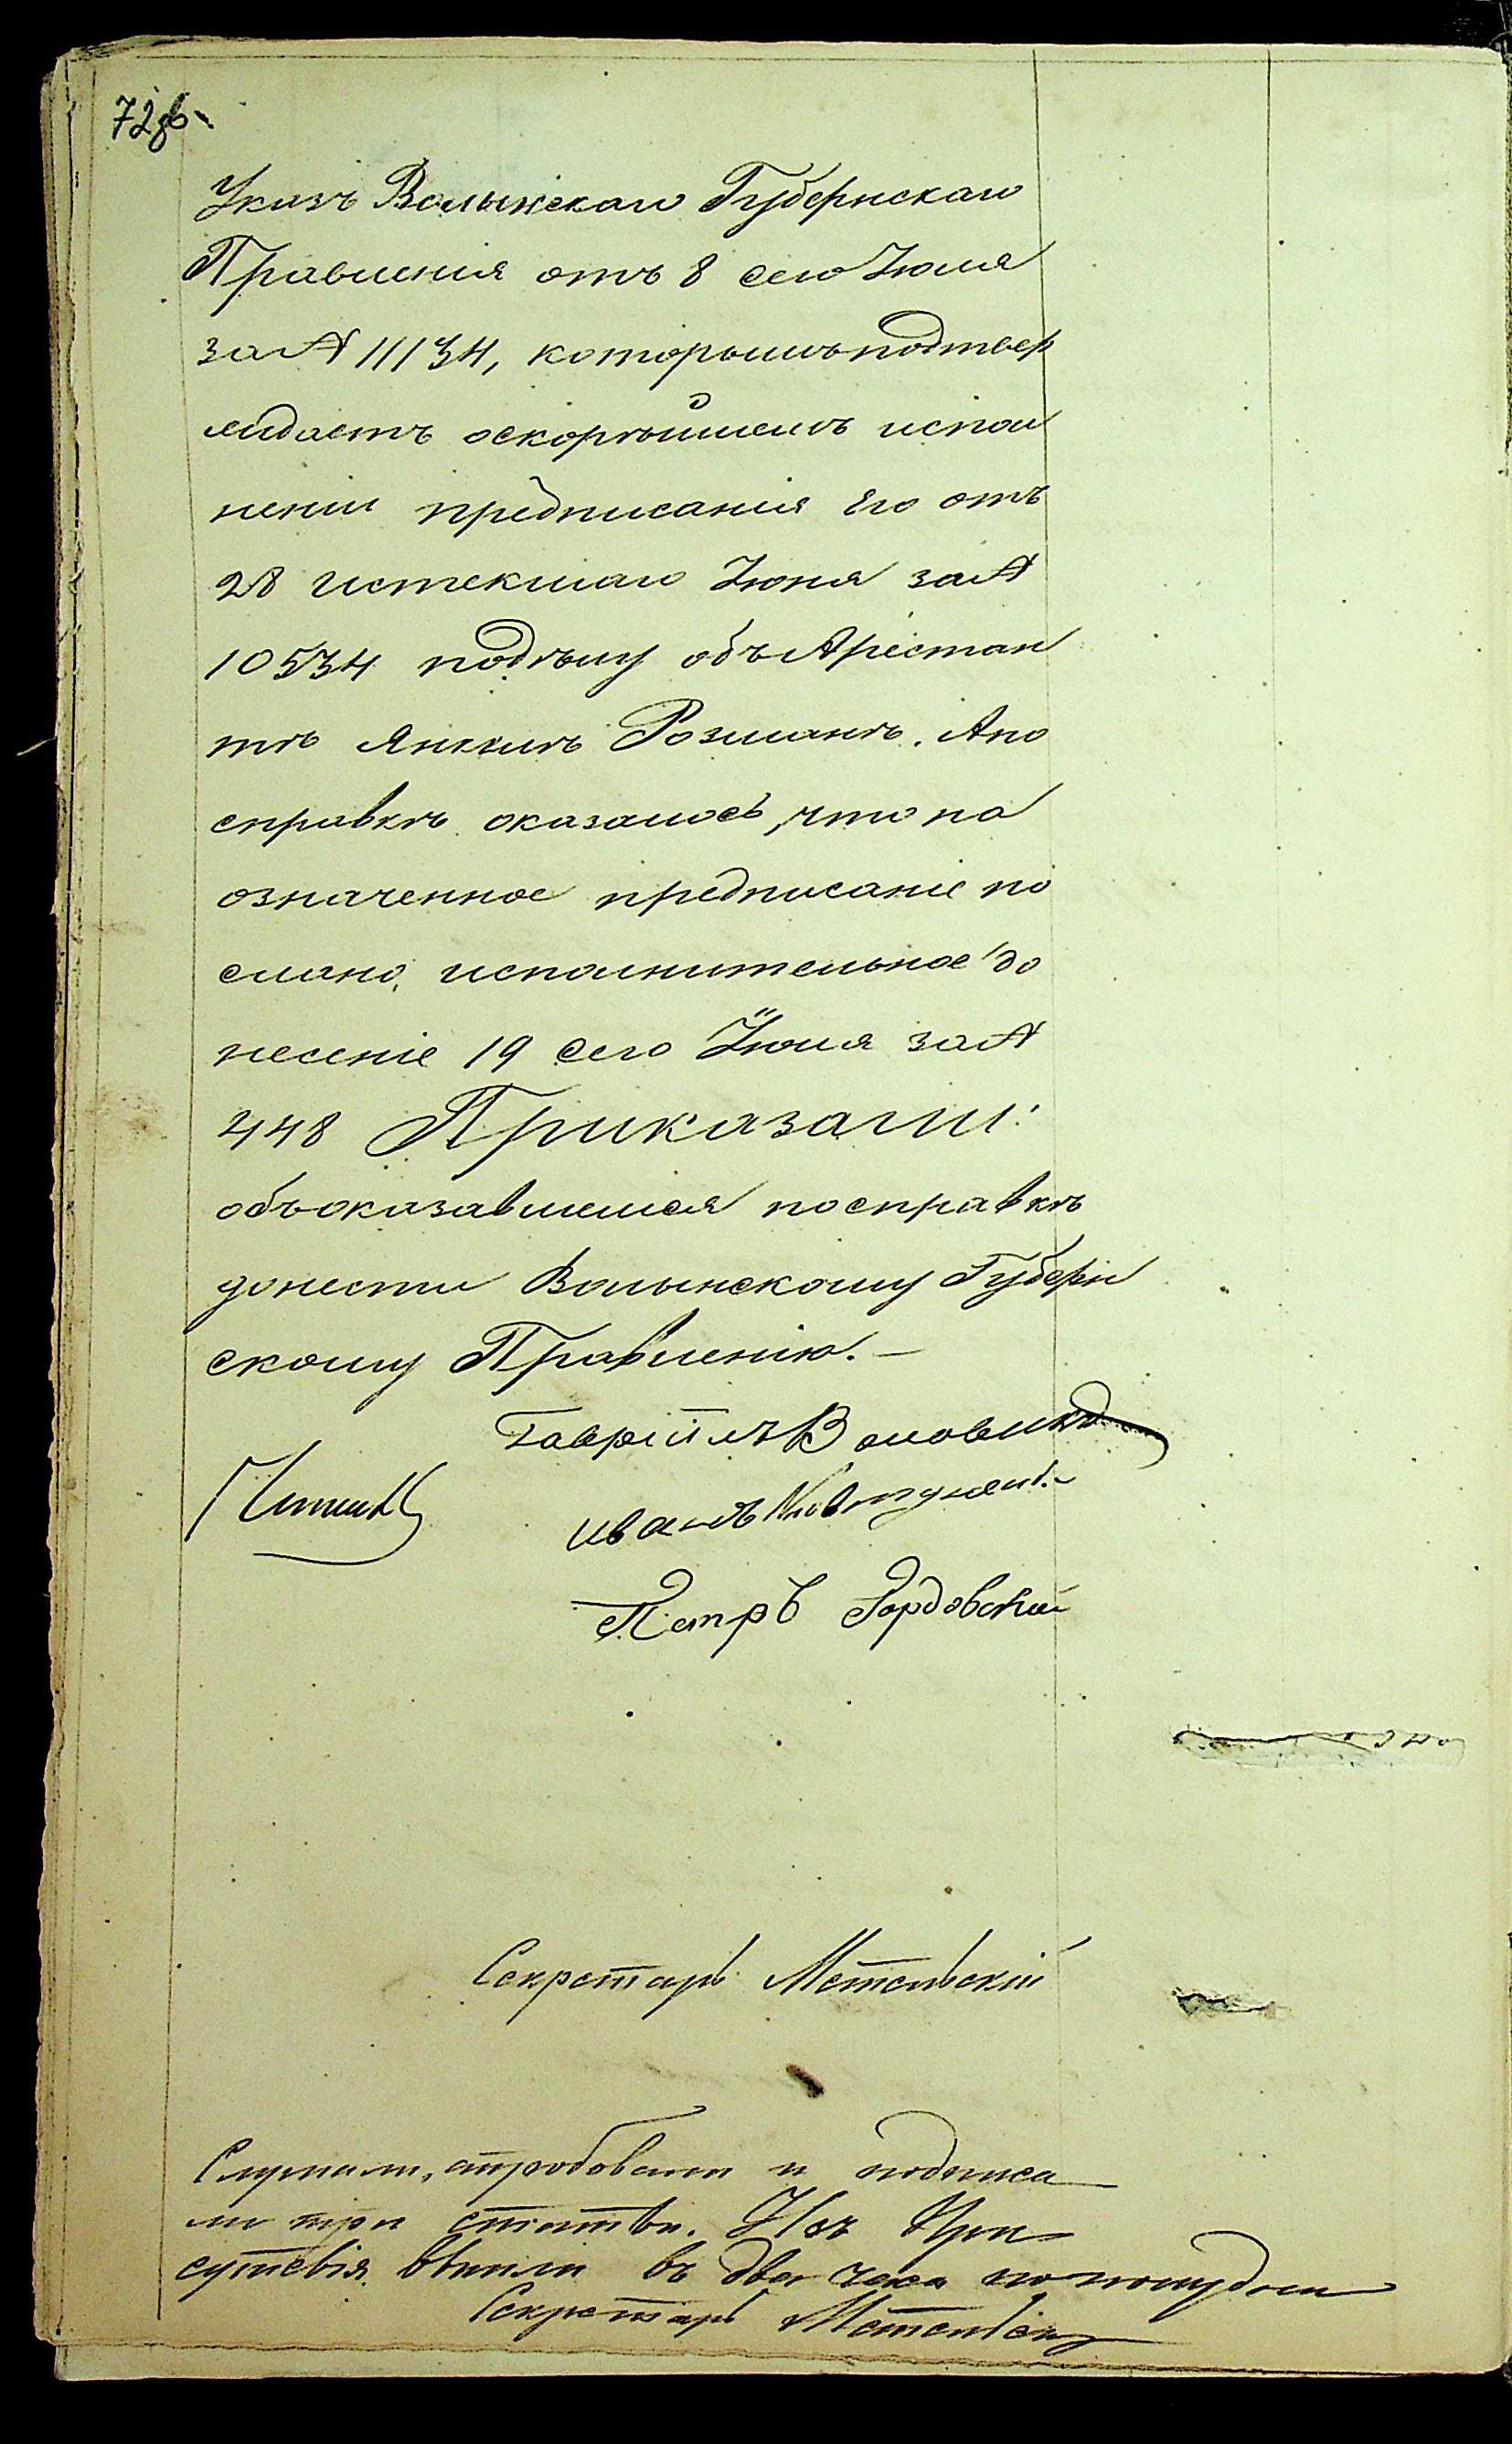 72об
Указъ Волынскаго Губернскаго
Правленія отъ 8 сего Іюля
за № 11134, которымъ подтвер
ждаетъ о скорѣйшемъ испол
неніи предписанія Его отъ
28 истекшаго Іюня за №
10534 по дѣлу объ Арестан
тѣ Янкелѣ Розманѣ. А по
справкѣ оказалось, что на
означенное предписаніе по
слано исполнительное до
несеніе 19 сего Іюля за №
448 Приказали:
объ оказавшемся по справкѣ
донести Волынскому Губерн
скому Правленію. —
Гавріилъ
Иванъ
Петръ
Секретарь Метельскій
Слушали, апробовали и подписа
ли три статьи. Изъ При
сутствія вышли въ два часа по полудни
Секретарь Метельскій